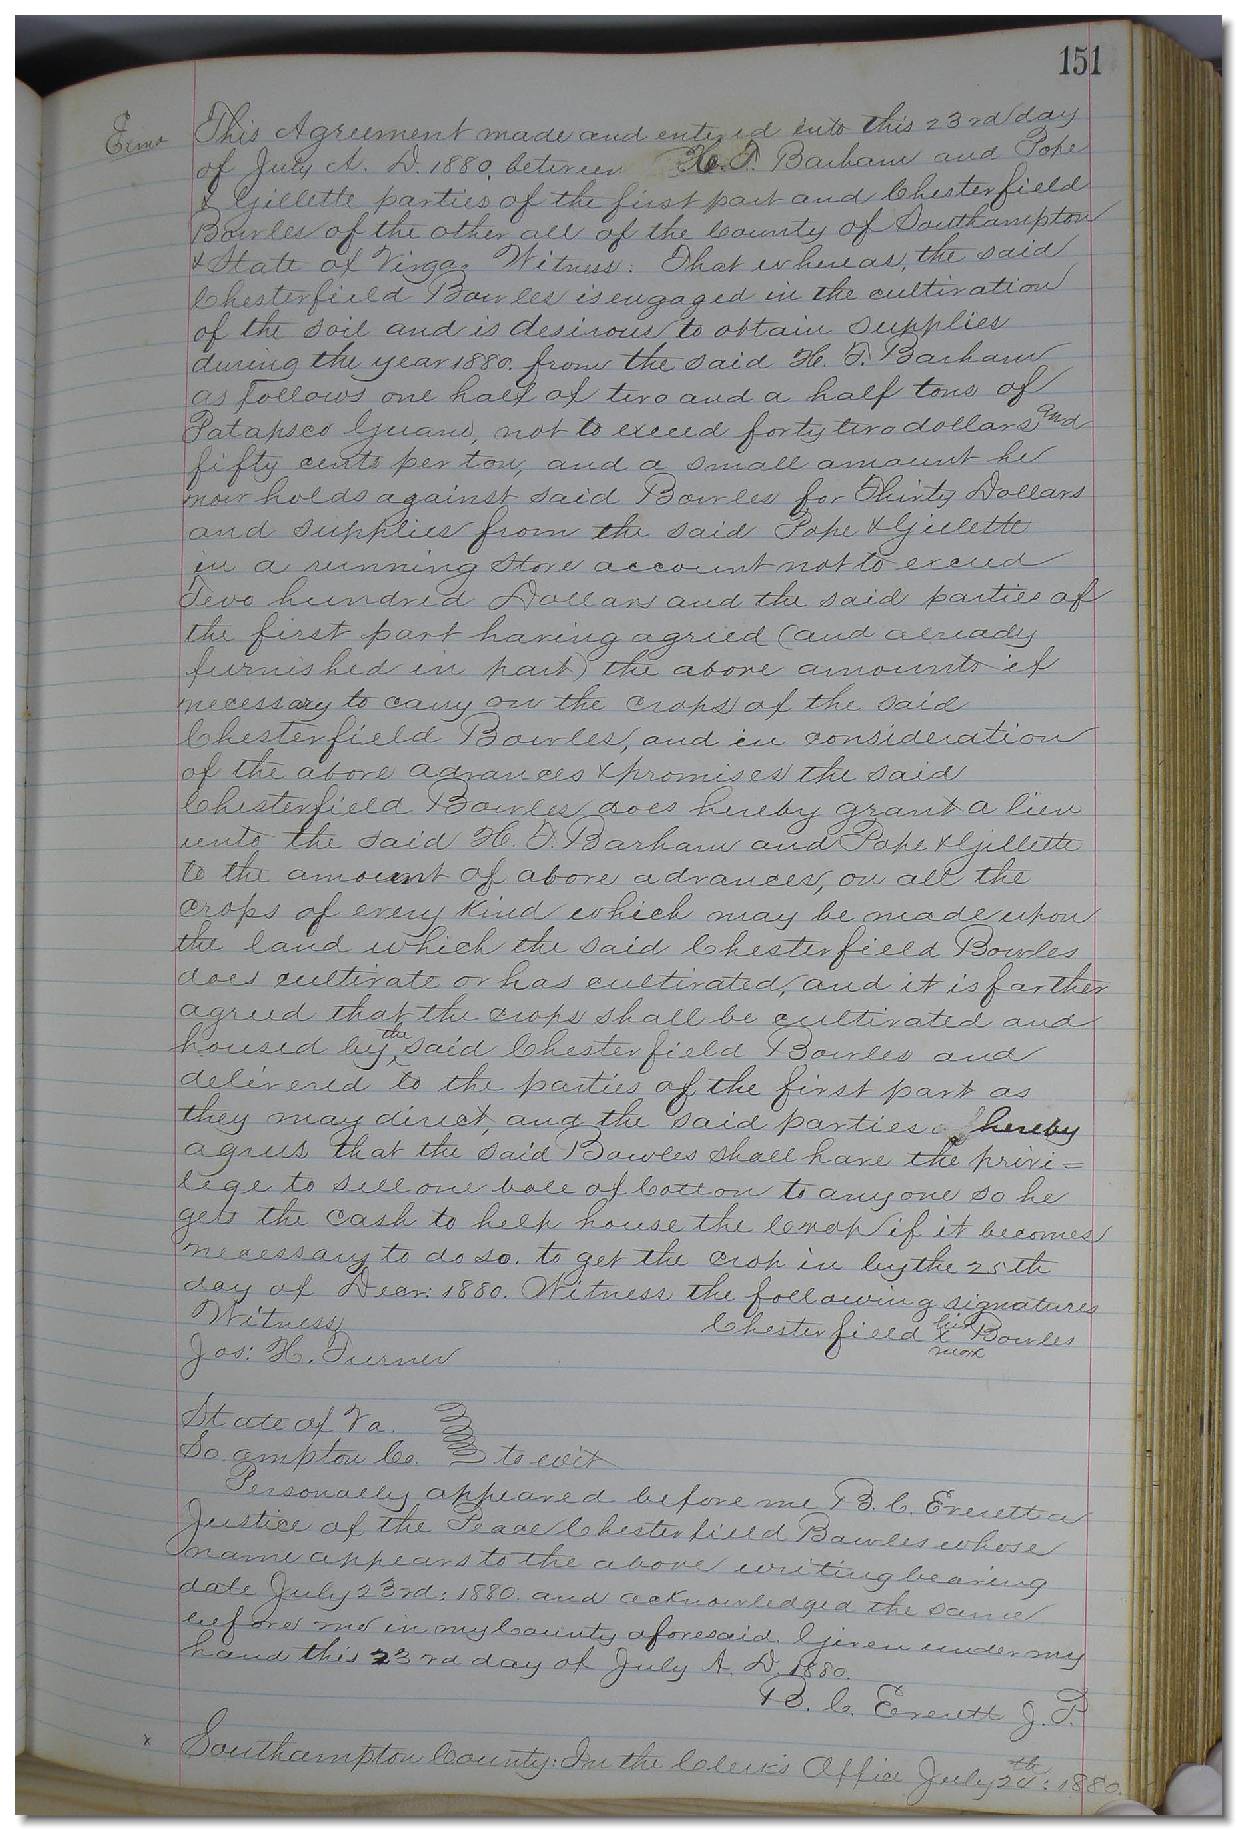 151
This Agreement made and entered into this 23rd day
of July A. D. 1880, between H. T. Barham and Pope
& Gillette parties of the first part and Chesterfield
Bowles of the other all of the County of Southampton
& State of Virga: Witness: That whereas, the said
Chesterfield Bowles is engaged in the cultivation
of the soil and is desirous to obtain supplies
during the year 1880. from the said H. T. Barham
as follows one half of two and a half tons of
Patapsco Guano, not to exceed forty two dollars and
fifty cents per ton, and a small amount he
now holds against said Bowles for Thirty Dollars
and supplies from the said Pope & Gillette
in a running Store account not to exceed
Two hundred Dollars and the said parties of
the first part having agreed (and already
furnished in part) the above amounts if
necessary to carry on the crops of the said
Chesterfield Bowles, and in consideration
of the above advances & promises the said
Chesterfield Bowles does hereby grant a lien
unto the said H. T. Barham and Pope & Gillette
to the amount of above advances, on all the
crops of every kind which may be made upon
the land which the said Chesterfield Bowles
does cultivate or has cultivated, and it is farther
agreed that the crops shall be cultivated and
housed by the said Chesterfield Bowles and
delivered to the parties of the first part as
they may direct, and the said parties hereby
agrees that the said Bowles shall have the privi=
lege to sell one bale of Cotton to anyone so he
gets the cash to help house the Crop if it becomes
necessary to do so. to get the crop in by the 25th
day of Decr: 1880. Witness the following signatures
Witness Chesterfield his x mark Bowles
Jos: H. Turner
State of Va.
So ampton Co. to wit
Personally appeared before me B. C. Everett a
Justice of the Peace Chesterfield Bowles whose
name appears to the above writing bearing
date July 23rd: 1880. and acknowledged the same
before me in my County aforesaid. Given under my
hand this 23rd day of July A. D. 1880.
B. C. Everett J. P.
x Southampton County: In the Clerk's Office July 24th: 1880.